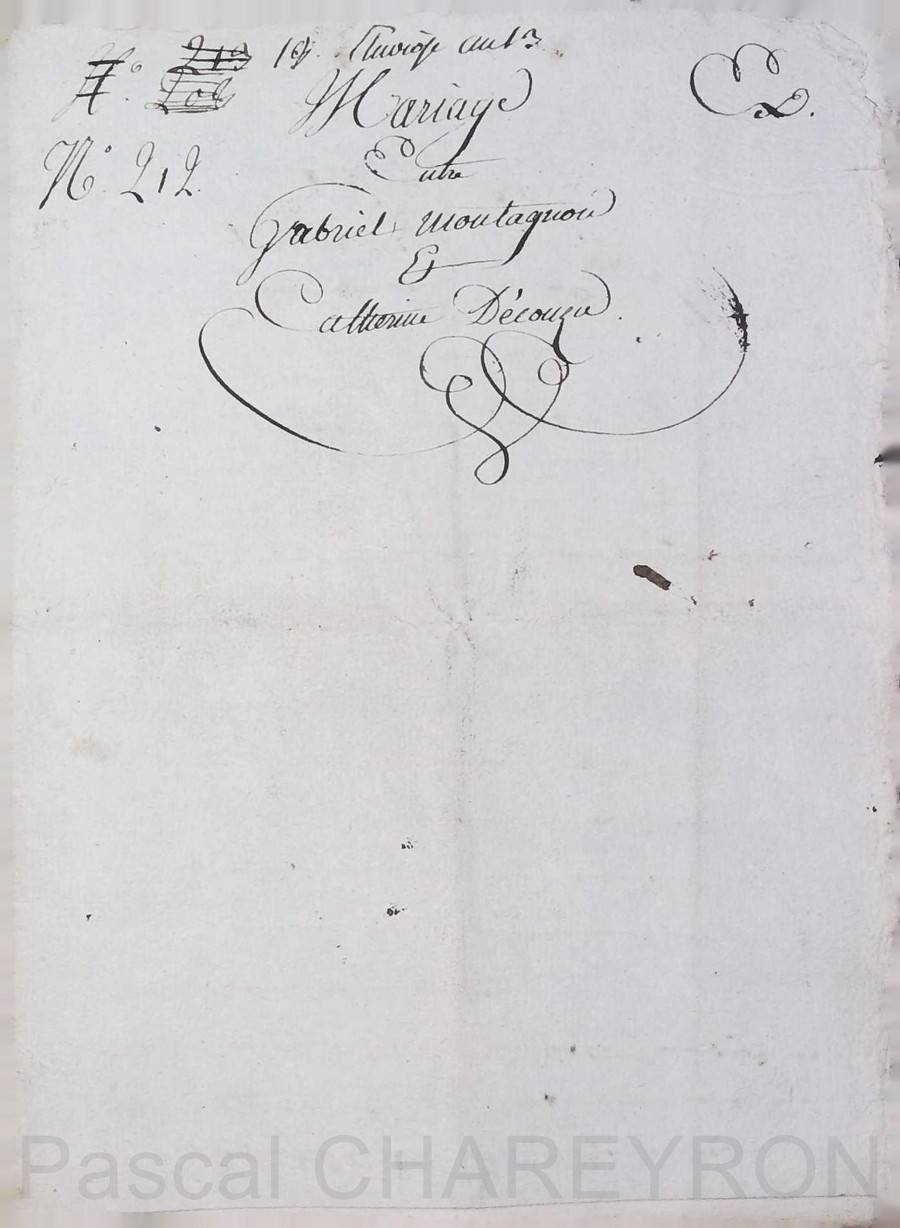 N.° 212 19. pluviôse an 13
N.° 202
Mariage
Ex.
N.° 212.
Entre
Gabriel montagnon
&
Catherine Découzu.
Pascal CHAREYRON